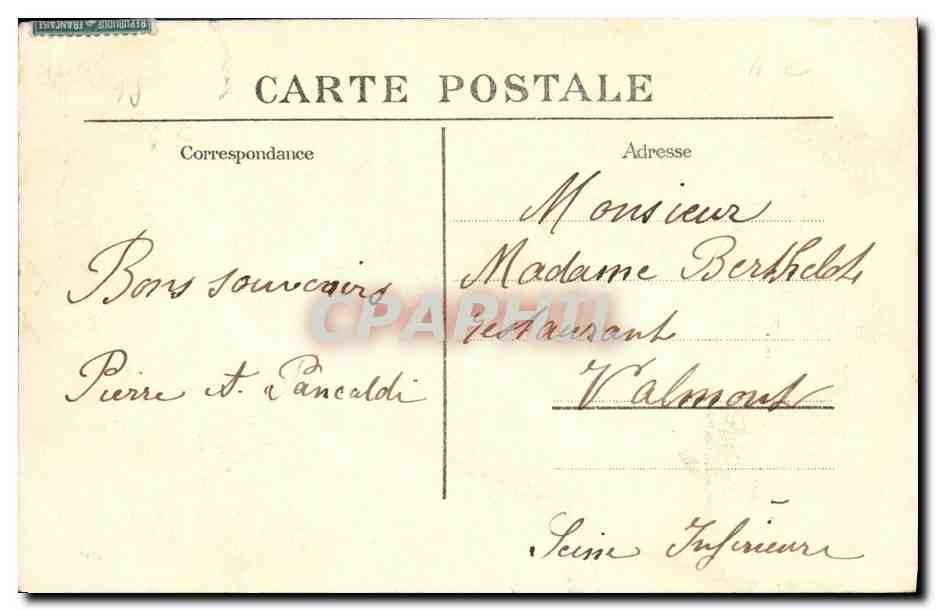 REPUBLIQUE FRANCAISE
CARTE POSTALE
Correspondance
Bons souvenirs
Pierre et A. Pancaldi
Adresse
Monsieur
Madame Berthelot
restaurant
Valmont
Seine Inférieure
CPAPHIL